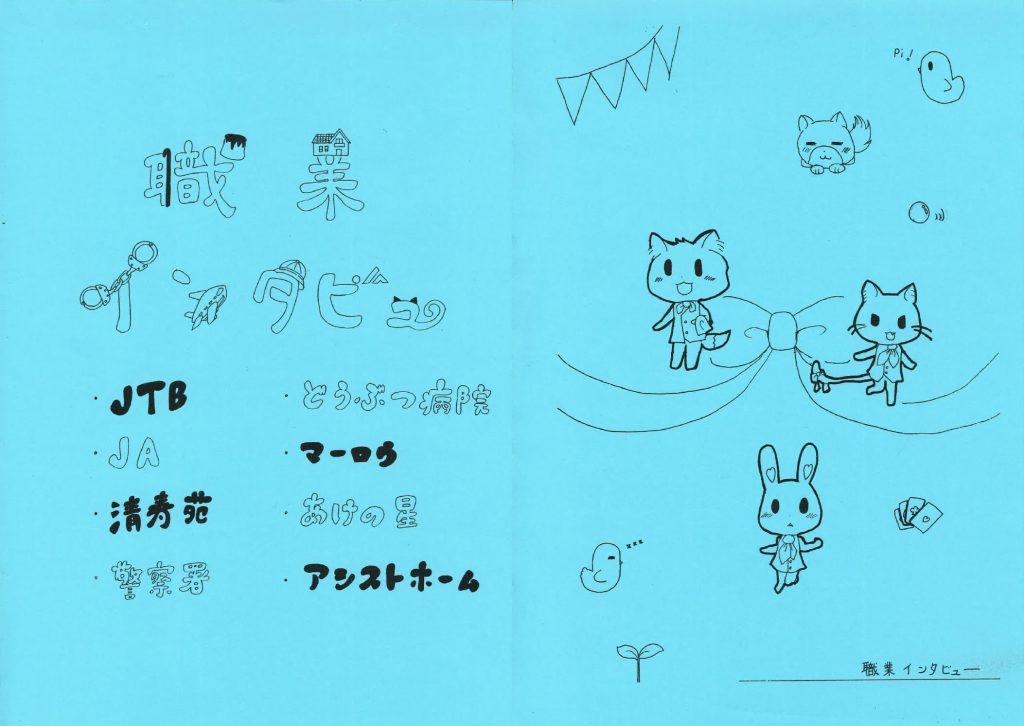 職業
インタビュー
・JTB
・JA
・清寿苑
・警察署
・どうぶつ病院
・マーロウ
・あけの星
・アシストホーム
Pi!
zzz
職業インタビュー